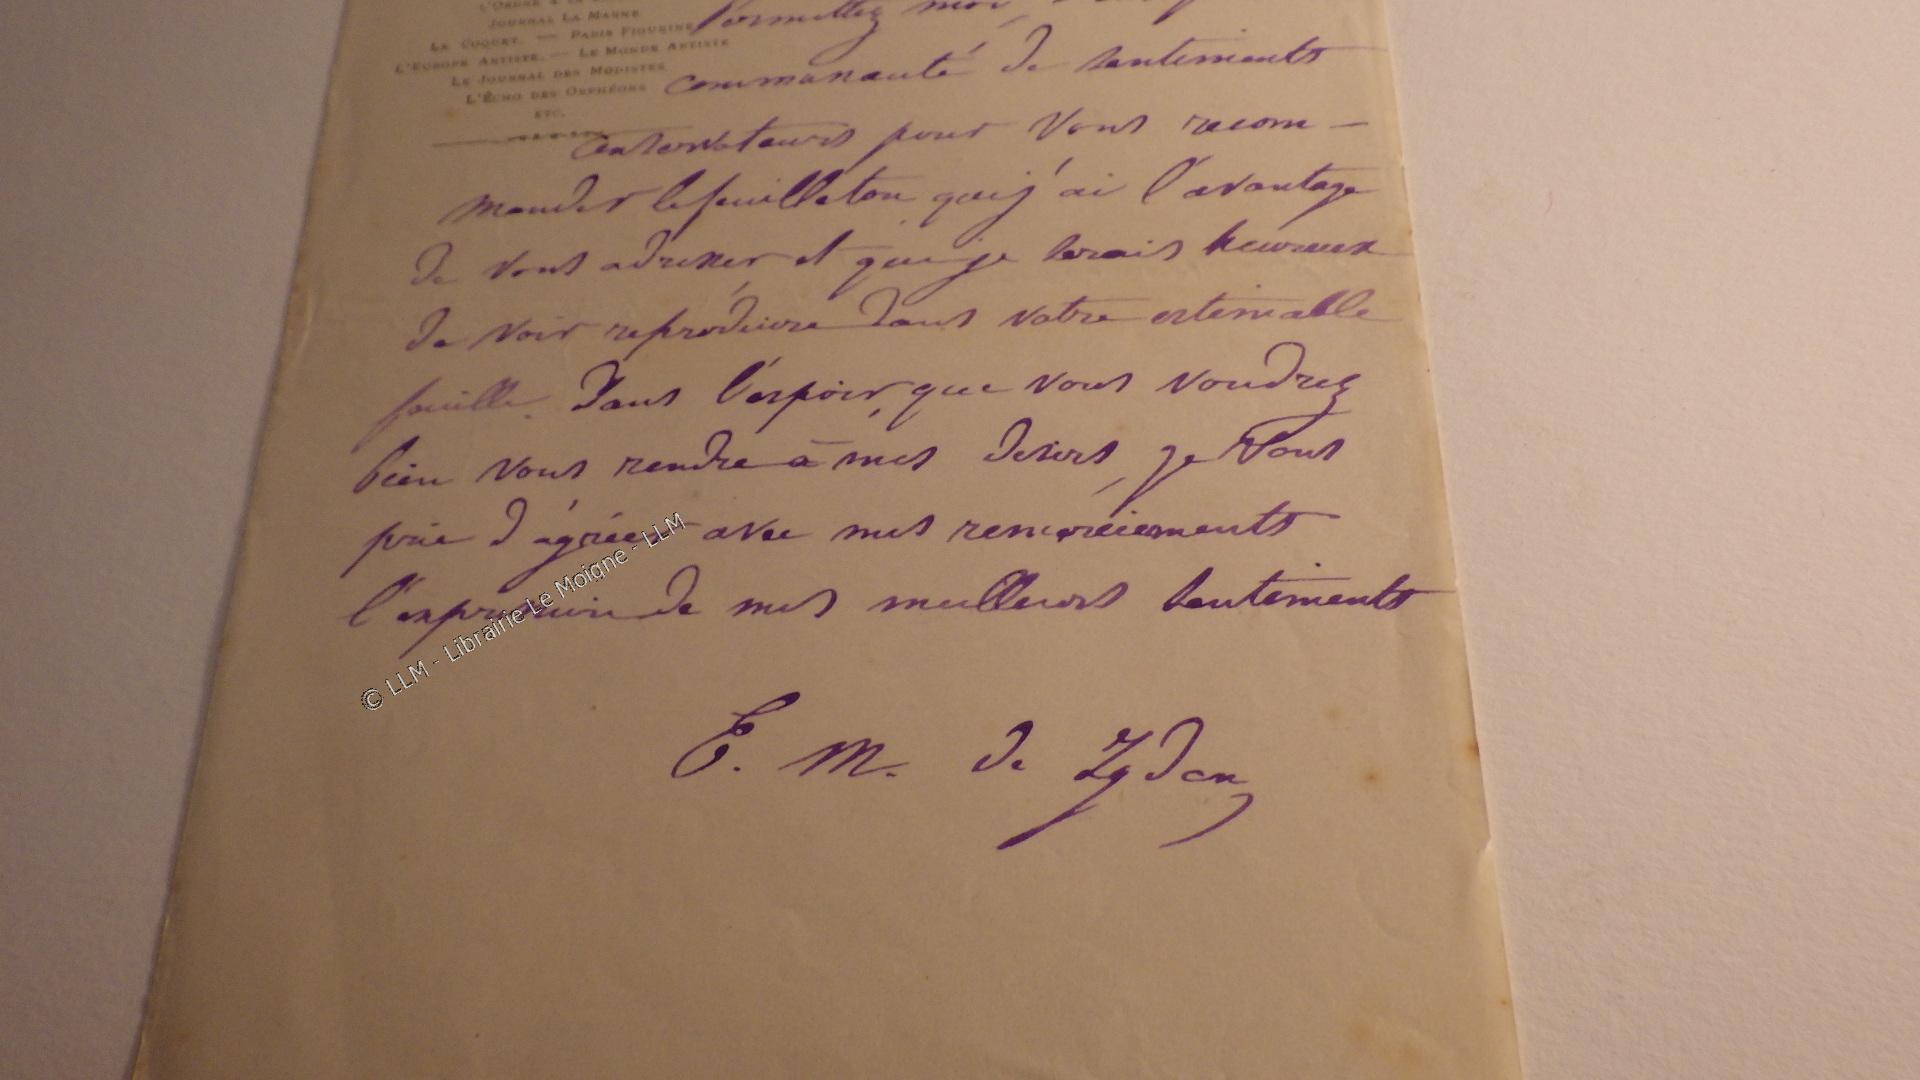 JOURNAL LA MARNE
LE COQUET. — PARIS FIGURINE
L'EUROPE ARTISTE. — LE MONDE ARTISTE
LE JOURNAL DES MODISTES
L'ÉCHO DES ORPHÉONS
ETC.
Permettez moi,
communauté de sentiments
conservateurs pour vous recom-
mander le feuilleton que j'ai l'avantage
de vous adresser et que je serais heureux
de voir reproduire dans votre estimable
feuille. Dans l'espoir que vous voudrez
bien vous rendre à mes desirs, je vous
prie d'agréer avec mes remerciements
l'expression de mes meilleurs sentiments
E. M. de Lyden
© LLM - Librairie Le Moigne - LLM